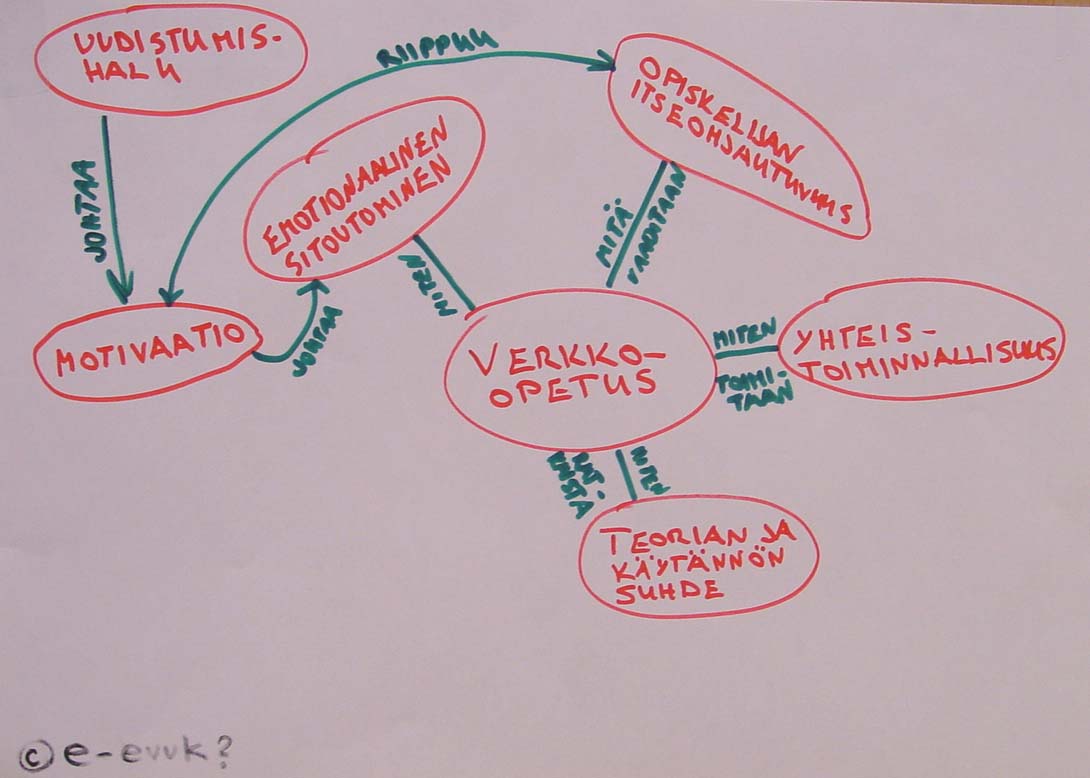 UUDISTUMIS-
HALU
RIIPPUU
OPISKELIJAN
ITSEOHJAUTUVUUS
JOHTAA
EMOTIONAALINEN
SITOUTUMINEN
MITÄ
VAADITAAN
MOTIVAATIO
JOHTAA
VERKKO-
OPETUS
MITEN
TOIMI-
TAAN
YHTEIS-
TOIMINNALLISUUS
MITEN
TEORIAN JA
KÄYTÄNNÖN
SUHDE
© e-evuk?